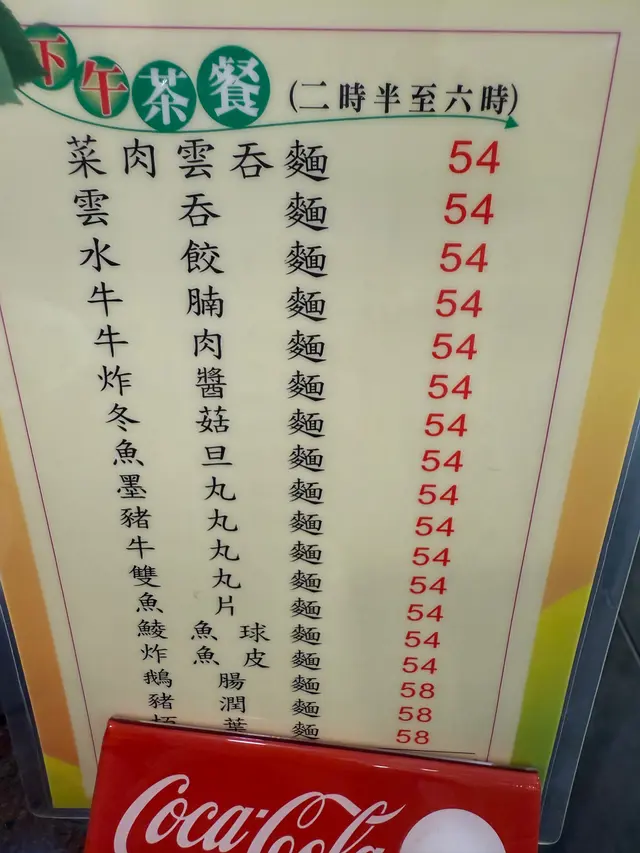 下午茶餐 (二時半至六時)
菜肉雲吞麵 54
雲吞麵 54
水餃麵 54
牛腩麵 54
牛肉麵 54
炸醬麵 54
冬菇麵 54
魚旦麵 54
墨丸麵 54
豬丸麵 54
牛丸麵 54
雙丸麵 54
魚片麵 54
鯪魚球麵 54
炸魚皮麵 54
鵝腸麵 58
豬潤麵 58
葉麵 58
Coca-Cola